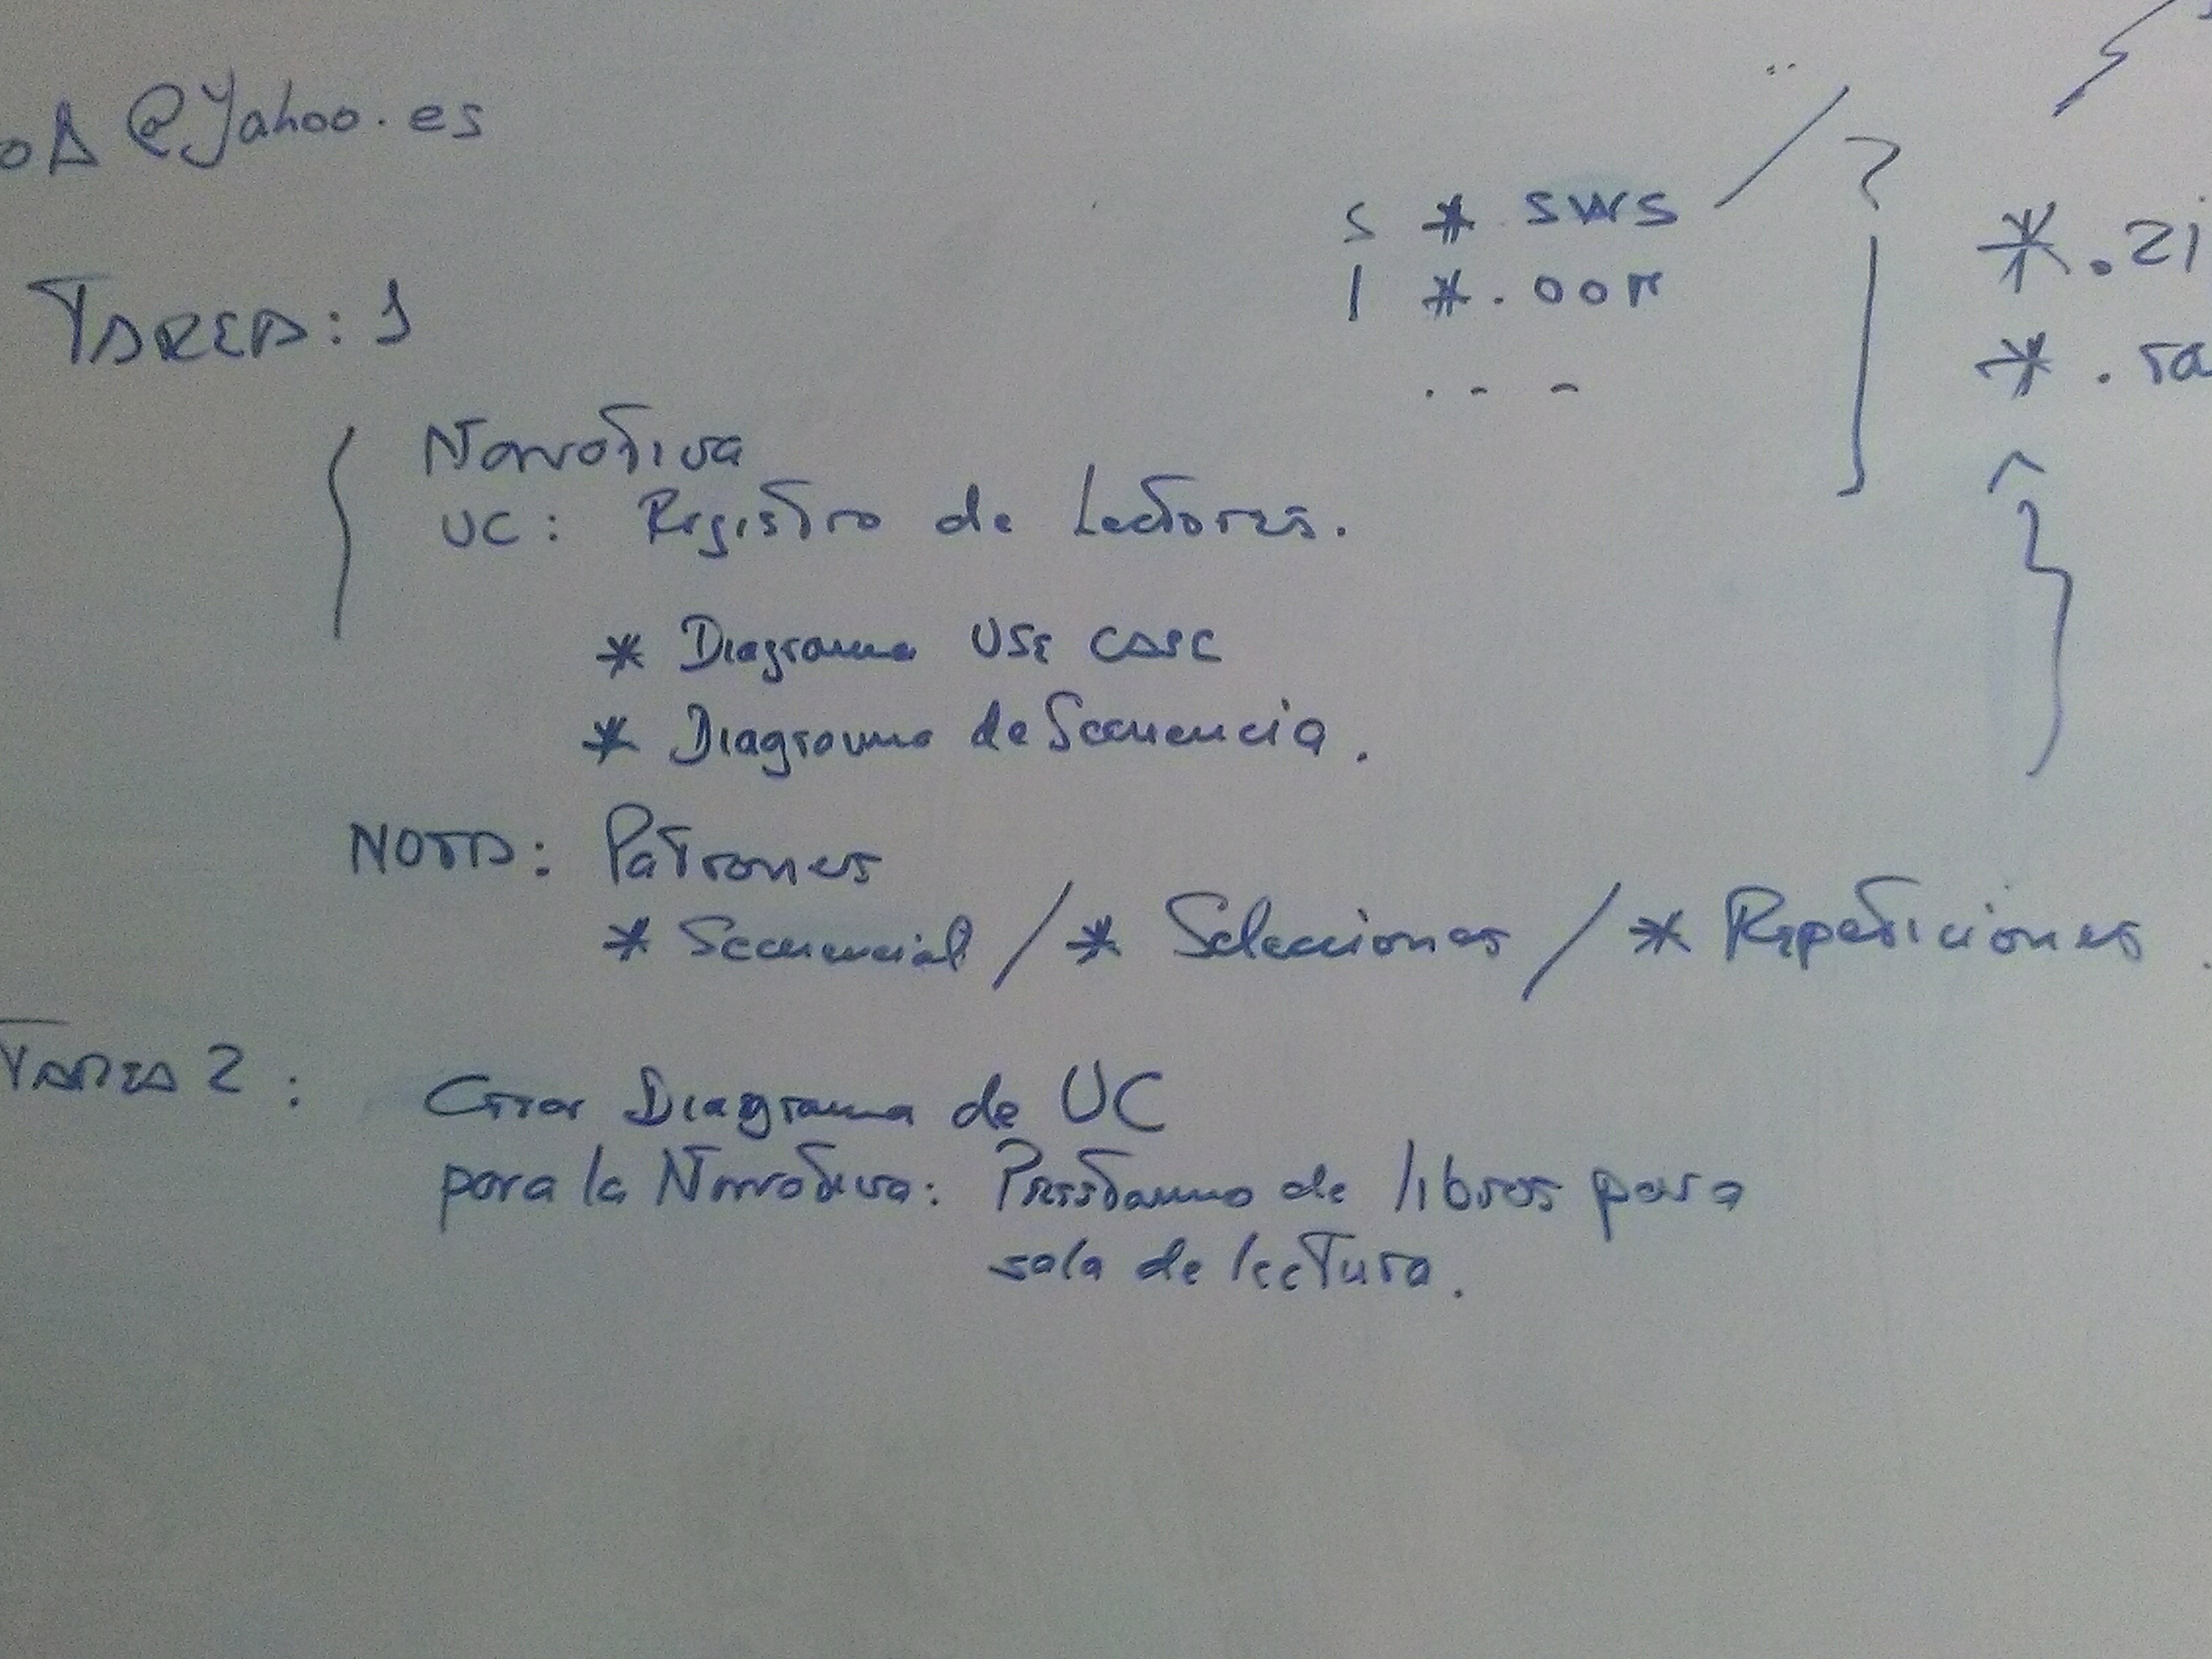 oA @Yahoo.es
TAREA: 1
S * SWS
1 *.OOM
*.zi
*.ra
Narrativa
UC: Registro de Lectores.
* Diagrama USE CASE
* Diagrama de Secuencia.
NOTA: Patrones
* Secuencial / * Selecciones / * Repeticiones.
TAREA 2:
Crear Diagrama de UC
para la Narrativa: Prestamo de libros para
sala de lectura.